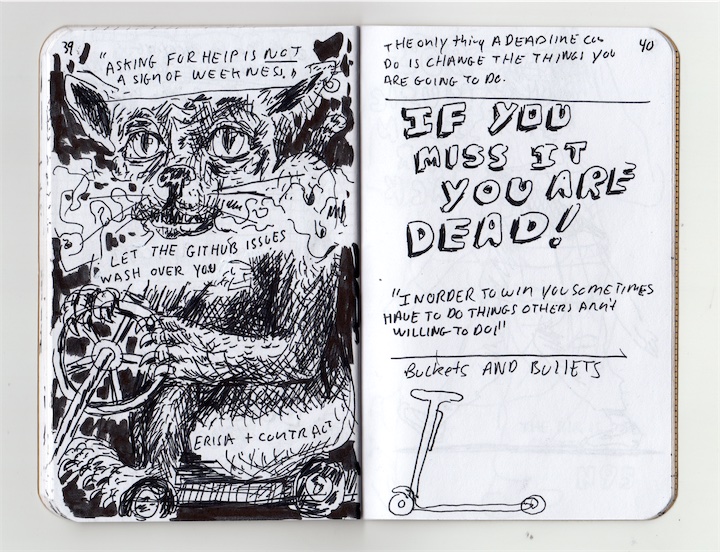 39
"ASKING FOR HELP IS NOT
A SIGN OF WEEKNESS."
LET THE GITHUB ISSUES
WASH OVER YOU
ERISA + CONTRACT
40
THE only thing A DEADLINE CAN
DO IS CHANGE THE THINGS YOU
ARE GOING TO DO.
IF YOU
MISS IT
YOU ARE
DEAD!
"IN ORDER TO WIN YOU SOMETIMES
HAVE TO DO THINGS OTHERS AREN'T
WILLING TO DO!"
Buckets AND BULLETS